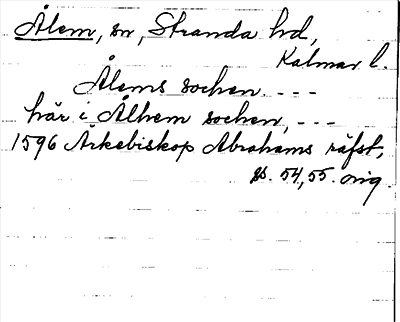 Ålem, sn, Stranda hd,
Kalmar l.
Ålems sochen. - - -
här i Ålhem sochen, - - -
1596 Ärkebiskop Abrahams räfst,
s. 54, 55. orig.